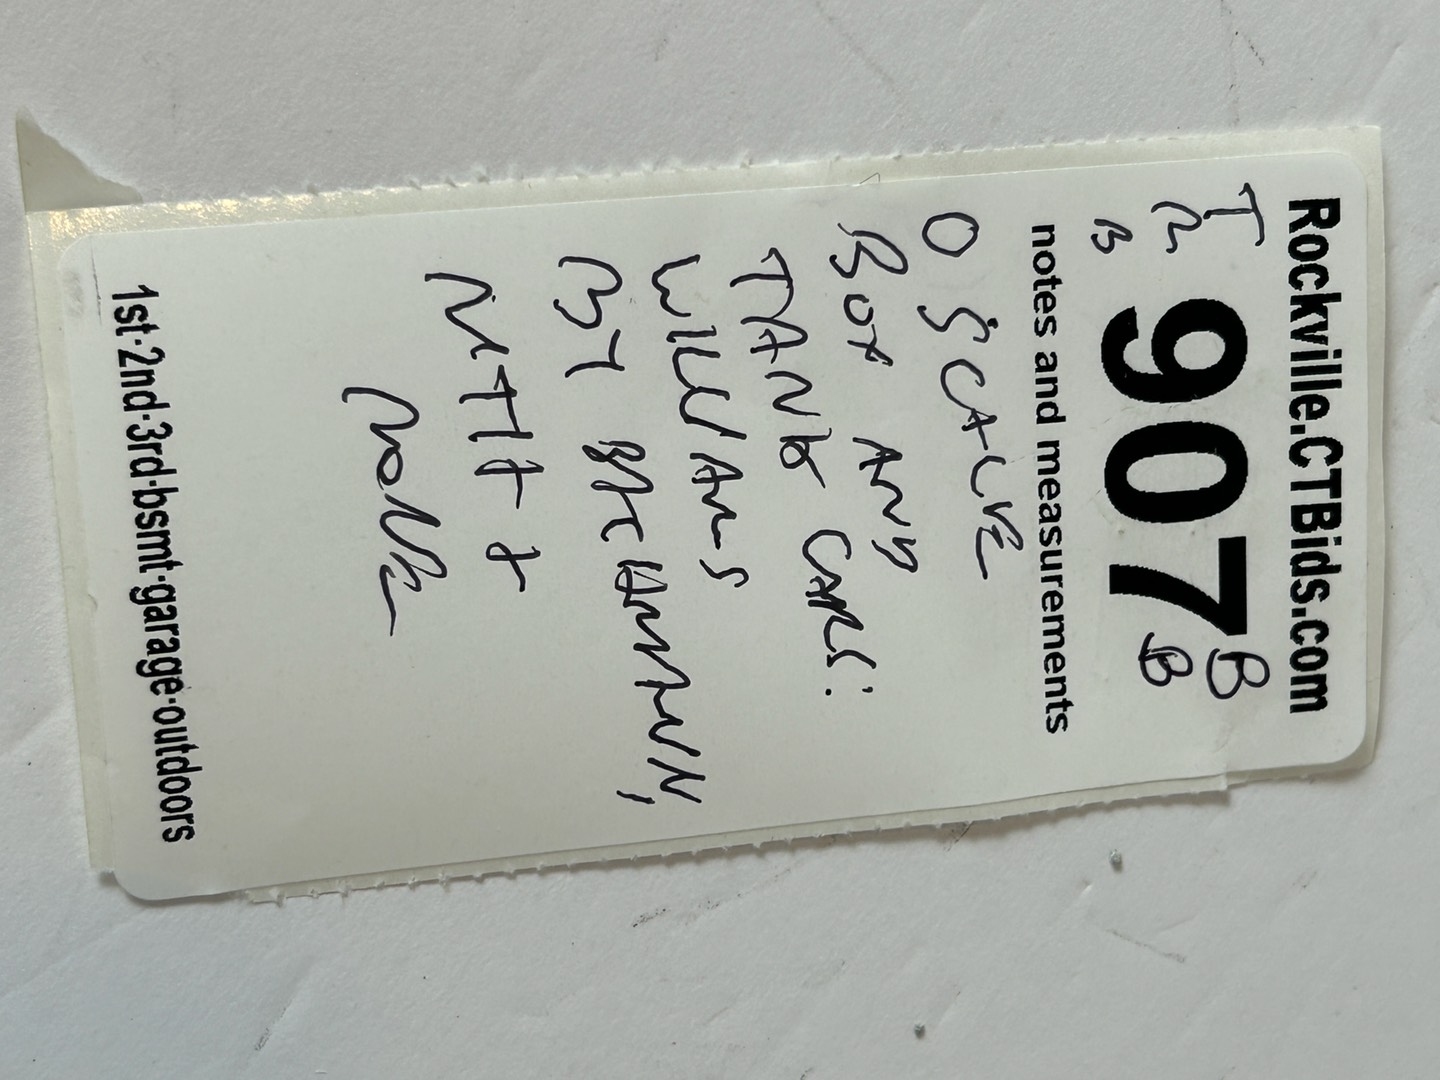 Rockville.CTBids.com
T
B
907
B
B
notes and measurements
O SCALE
BOX AND
TANK CARS:
WILLIAMS
BY BACHMANN,
MTH +
MORE
1st·2nd·3rd·bsmt·garage·outdoors